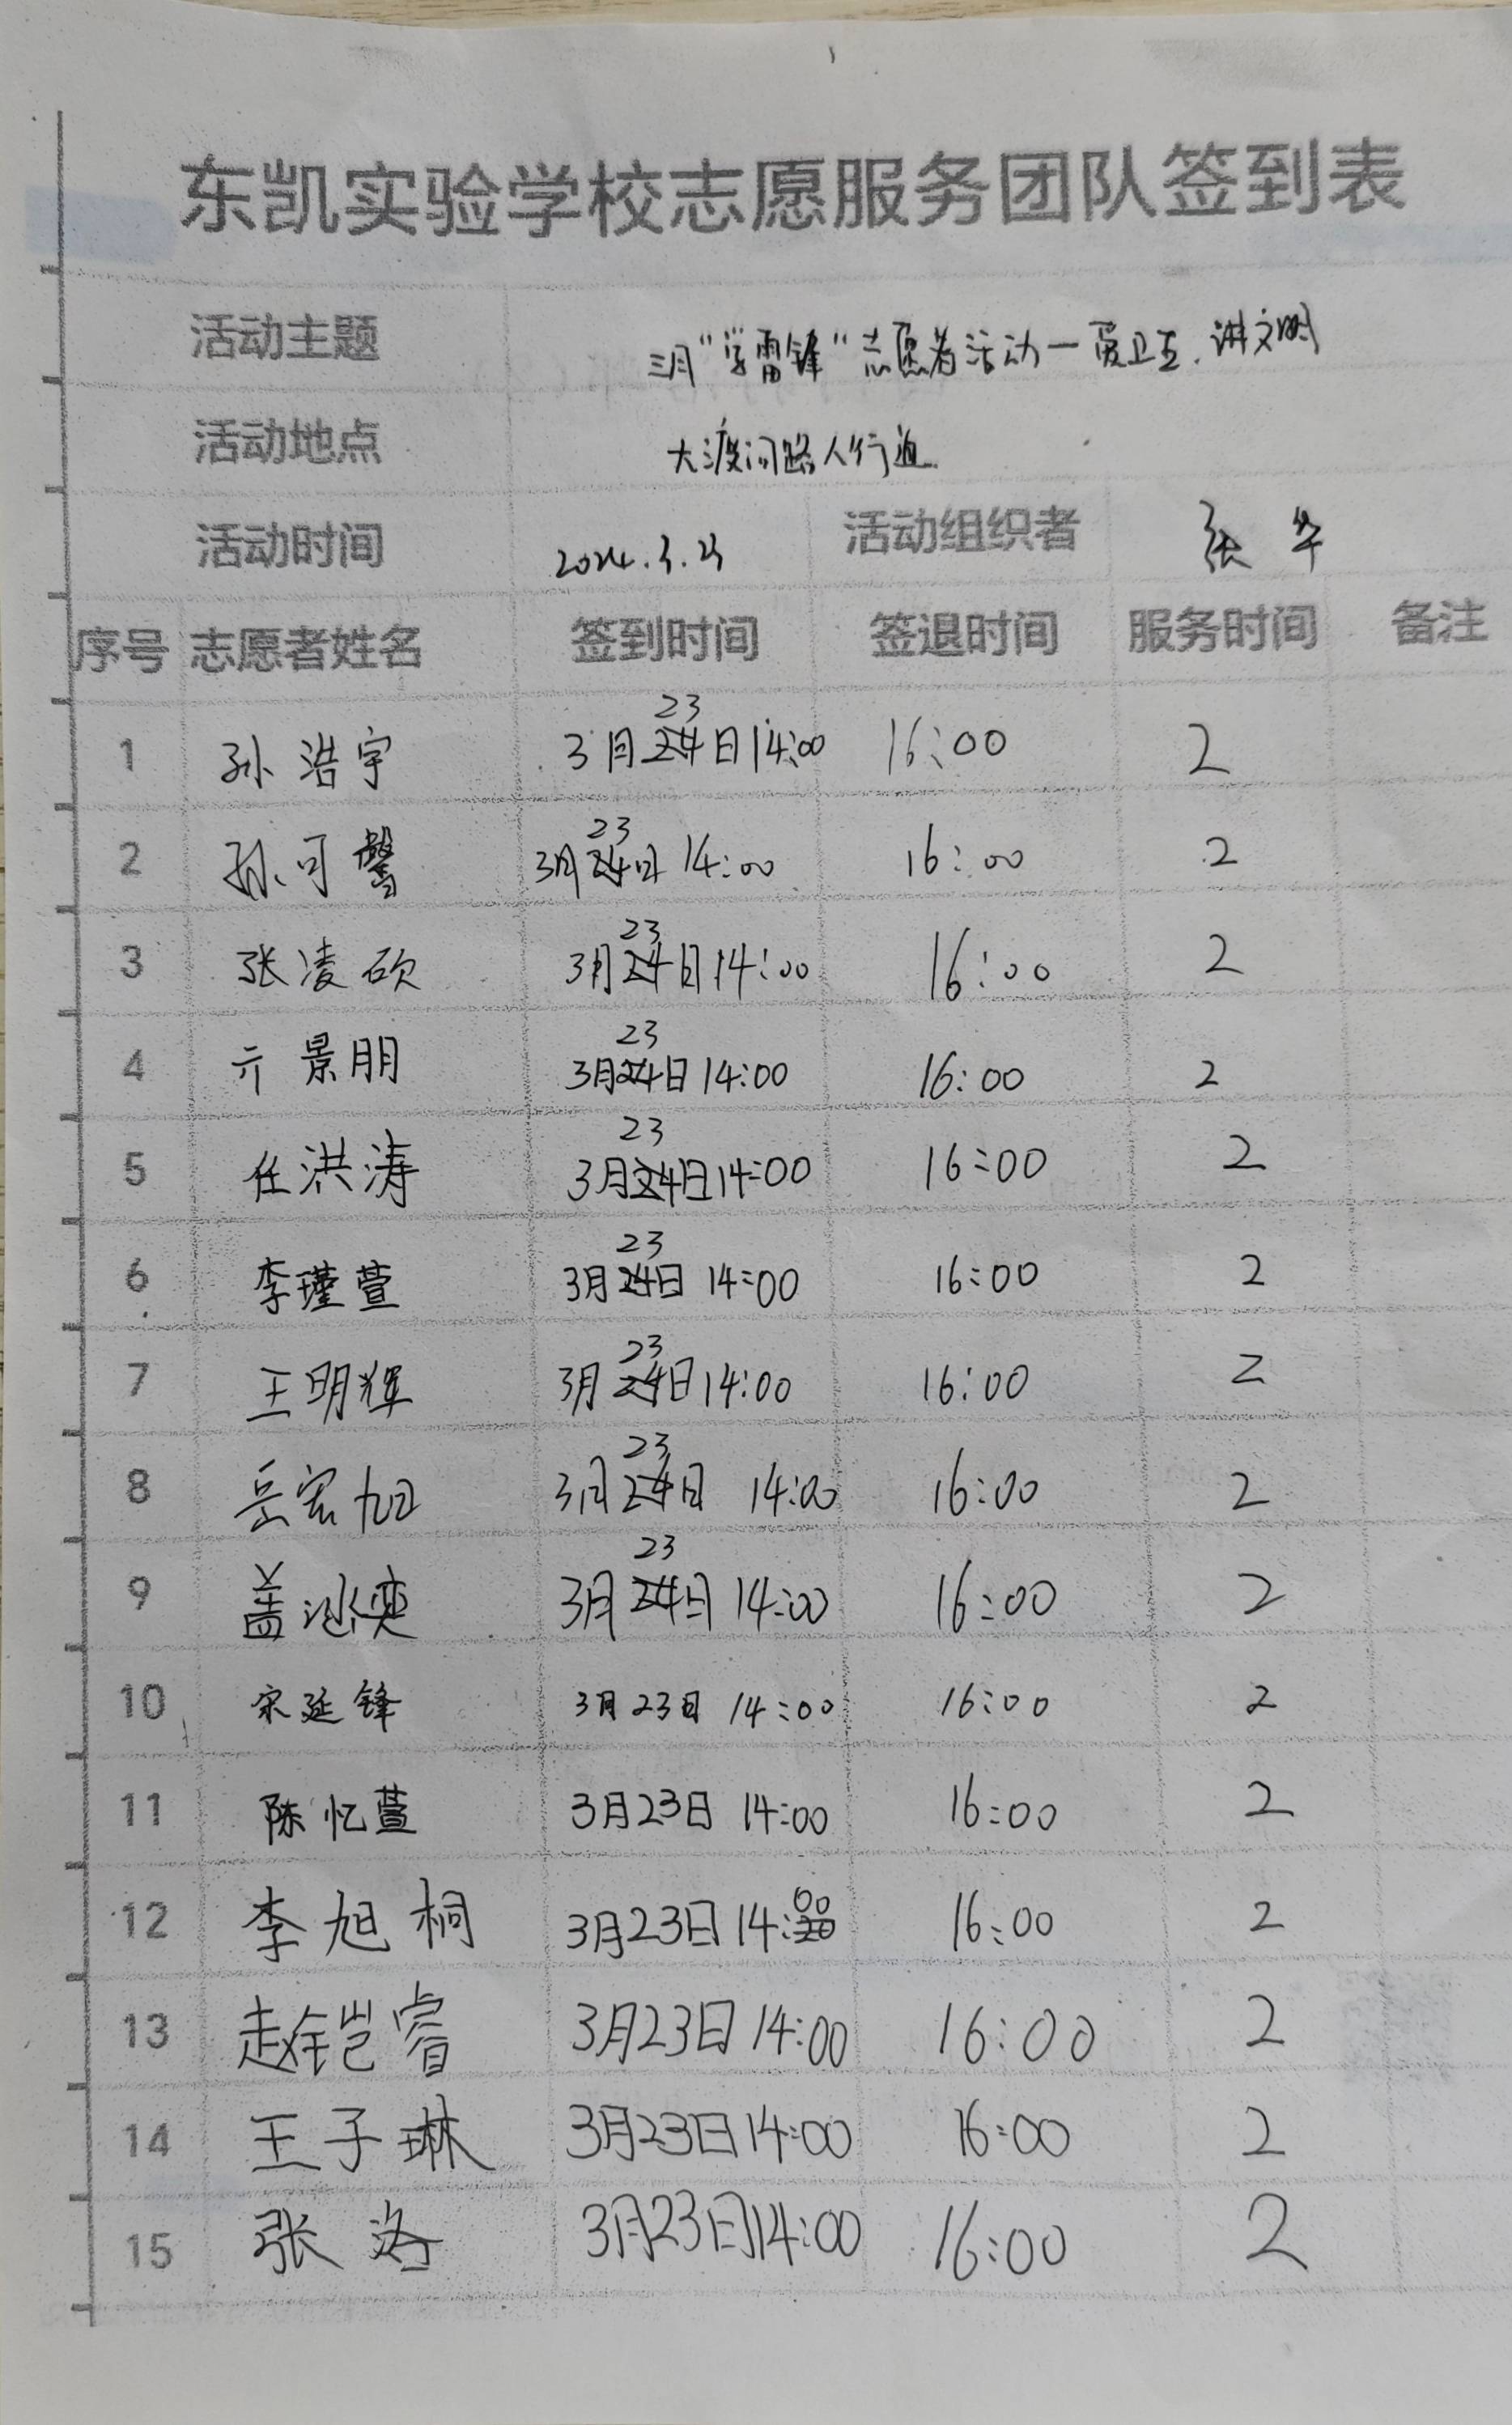 东凯实验学校志愿服务团队签到表
活动主题 三月“学雷锋”志愿者活动一爱卫生.讲文明
活动地点 大渡河路人行道
活动时间 2024.3.23 活动组织者 张华
序号 志愿者姓名 签到时间 签退时间 服务时间 备注
1 孙浩宇 3月23日14:00 16:00 2
2 孙可馨 3月23日 14:00 16:00 2
3 张凌硕 3月23日14:00 16:00 2
4 亓景朋 3月23日14:00 16:00 2
5 任洪涛 3月23日14:00 16:00 2
6 李瑾萱 3月23日 14:00 16:00 2
7 王明辉 3月23日14:00 16:00 2
8 岳宏旭 3月23日 14:00 16:00 2
9 盖 3月23日 14:00 16:00 2
10 宋延锋 3月23日 14:00 16:00 2
11 陈忆萱 3月23日 14:00 16:00 2
12 李旭桐 3月23日14:00 16:00 2
13 赵铠睿 3月23日14:00 16:00 2
14 王子琳 3月23日14:00 16:00 2
15 张洛 3月23日14:00 16:00 2